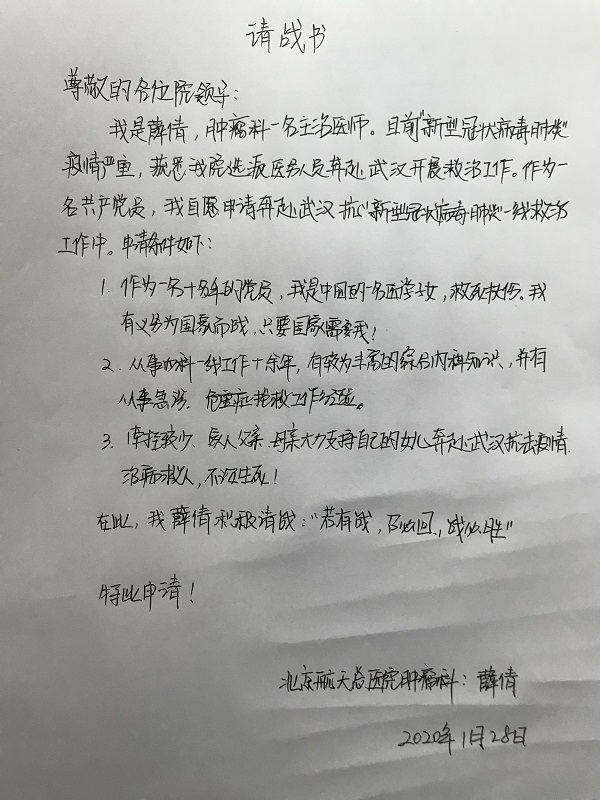 请战书
尊敬的各位院领导：
我是薛倩，肿瘤科一名主治医师。目前"新型冠状病毒肺炎"
疫情严重，获悉我院选派医务人员奔赴武汉开展救治工作。作为一
名共产党员，我自愿申请奔赴武汉抗"新型冠状病毒肺炎"一线救治
工作中。申请条件如下：
1. 作为一名十多年的党员，我是中国的一名医学子女，救死扶伤。我
有义务为国家而战，只要国家需要我！
2. 从事内科一线工作十余年，有较为丰富的综合内科知识，并有
从事急诊、危重症抢救工作经验。
3. 牵挂较少、家人父亲、母亲大力支持自己的女儿奔赴武汉抗击疫情.
治病救人，不论生死！
在此，我薛倩积极请战："若有战，召必回，战必胜"
特此申请！
北京航天总医院肿瘤科：薛倩
2020年1月28日